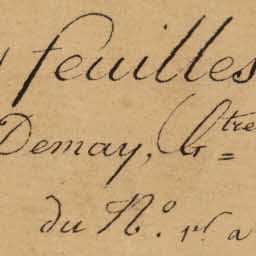 feuilles
Demay, L=tre
du N.o 1er a